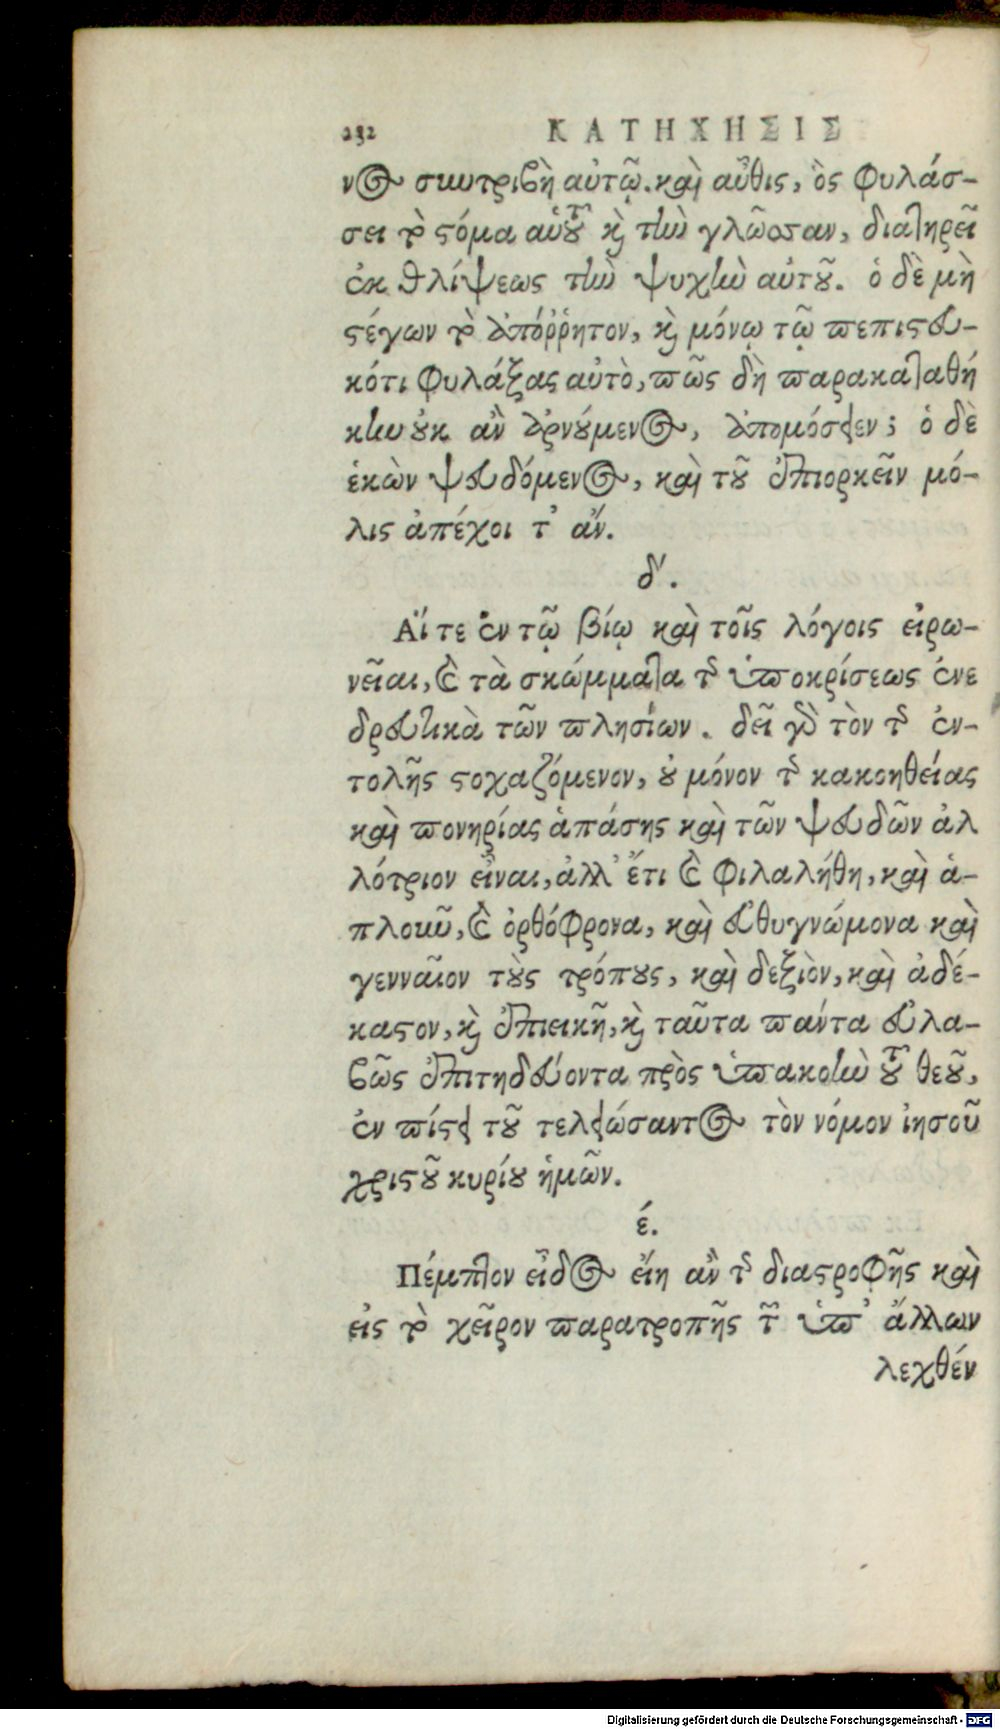 232 ΚΑΤΗΧΗΣΙΣ
νος συντριβὴ αὐτῷ. καὶ αὖθις, ὃς φυλάσ-
σει τὸ στόμα αὑτοῦ καὶ τὴν γλῶσσαν, διατηρεῖ
ἐκ θλίψεως τὴν ψυχὴν αὐτοῦ. ὁ δὲ μὴ
στέγων τὸ ἀπόῤῥητον, καὶ μόνῳ τῷ πεπιστευ-
κότι φυλάξας αὐτὸ, πῶς δὴ παρακαταθή
κην οὐκ ἂν ἀρνούμενος, ἀπομόσειεν; ὁ δὲ
ἑκὼν ψευδόμενος, καὶ τοῦ ἐπιορκεῖν μό-
λις ἀπέχοι τ’ ἄν.
δ´.
Αἵ τε ἐν τῷ βίῳ καὶ τοῖς λόγοις εἰρω-
νεῖαι, καὶ τὰ σκώμματα τῆς ὑποκρίσεως ἐνε
δρευτικὰ τῶν πλησίων. δεῖ γὰρ τὸν τῆς ἐν-
τολῆς στοχαζόμενον, οὐ μόνον τῆς κακοηθείας
καὶ πονηρίας ἁπάσης καὶ τῶν ψευδῶν ἀλ
λότριον εἶναι, ἀλλ’ ἔτι καὶ φιλαλήθη, καὶ ἁ-
πλοῦν, καὶ ὀρθόφρονα, καὶ εὐθυγνώμονα καὶ
γενναῖον τοὺς τρόπους, καὶ δεξιὸν, καὶ ἀδέ-
καστον, καὶ ἐπιεικῆ, καὶ ταῦτα πάντα εὐλα-
βῶς ἐπιτηδεύοντα πρὸς ὑπακοὴν τοῦ θεοῦ,
ἐν πίστει τοῦ τελειώσαντος τὸν νόμον ἰησοῦ
χριστοῦ κυρίου ἡμῶν.
έ.
Πέμπτον εἶδος εἴη ἂν τῆς διαστροφῆς καὶ
εἰς τὸ χεῖρον παρατροπῆς τῶν ὑπ’ ἄλλων
λεχθέν
Digitalisierung gefördert durch die Deutsche Forschungsgemeinschaft - DFG